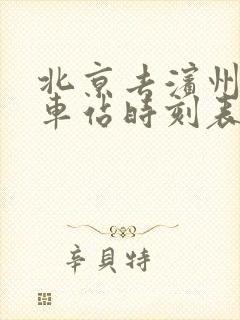 北京去濱州
車佔時刻表
辛貝特